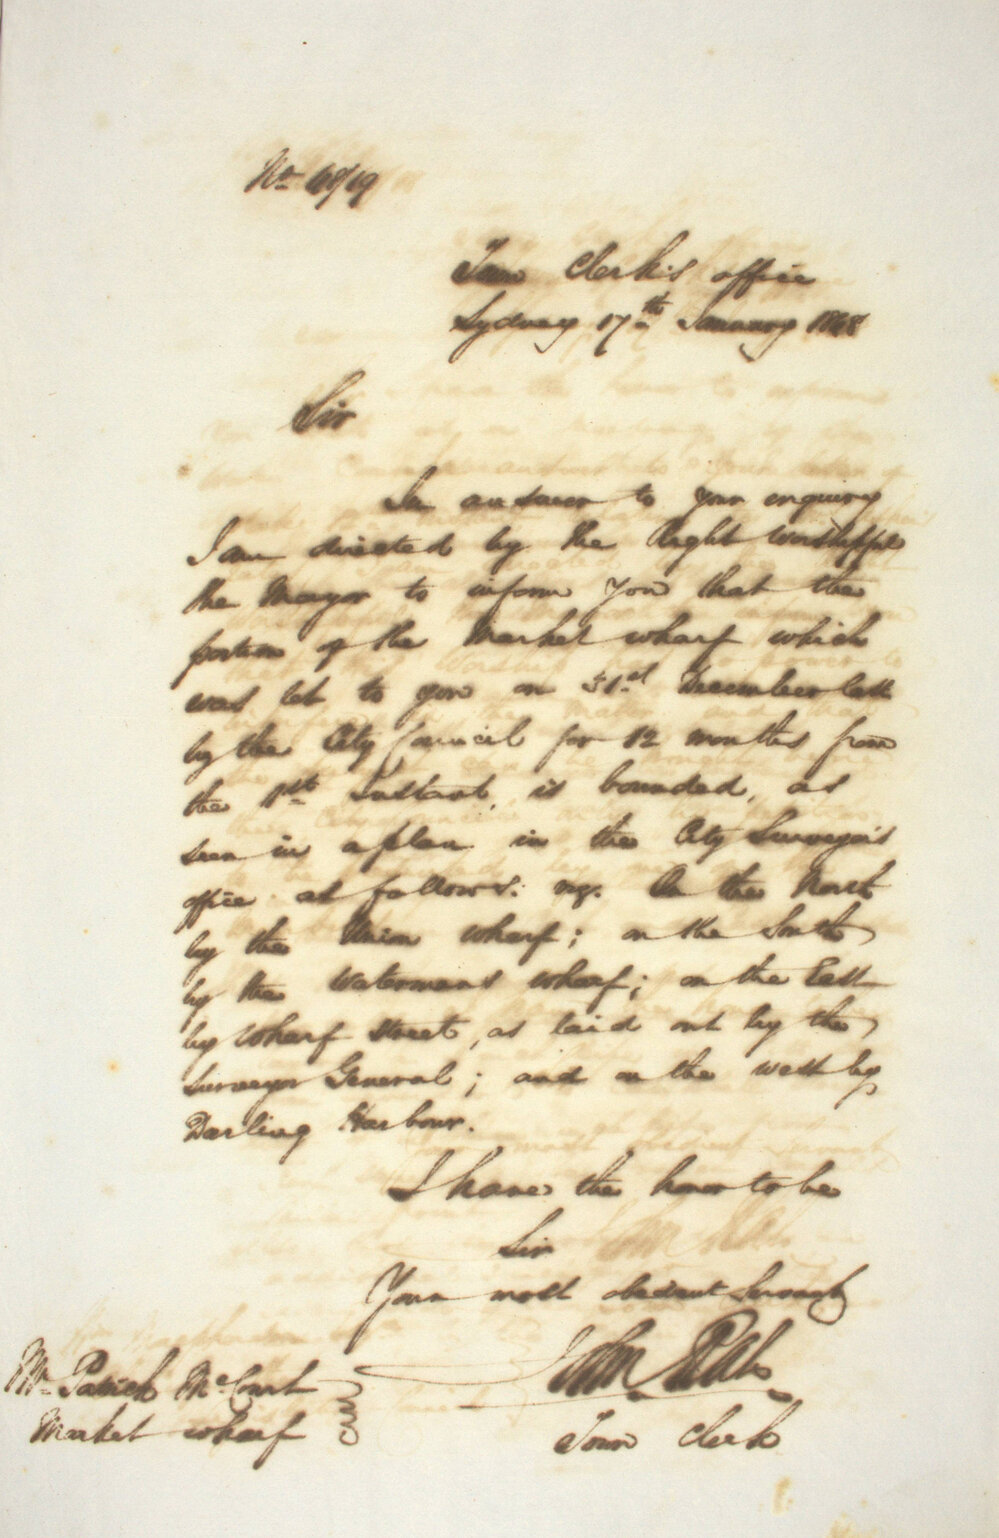 No 48/19
Town Clerk's office
Sydney 17th January 1848
Sir
In answer to your enquiry
I am directed by the Right Worshipful
the Mayor to inform you that the
portion of the Market wharf which
was let to you on 31st December last
by the City Council for 12 months from
the 1st Instant, is bounded, as
seen in a plan in the City Surveyor's
office as follows: viz. On the North
by the Union wharf; on the South
by the Watermans wharf; on the East
by Wharf Street, as laid out by the
Surveyor General; and on the west by
Darling Harbour.
I have the honor to be
Sir
Your most obedient Servant
John Rae
Town Clerk
Mr Patrick McCourt
Market wharf